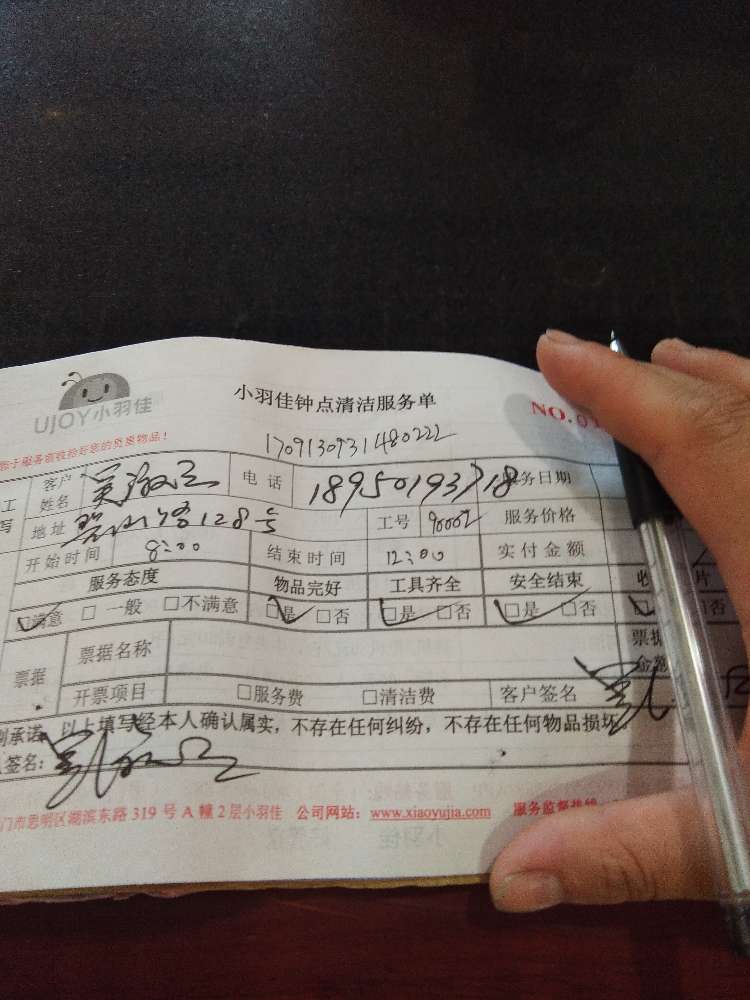 UJOY小羽佳
小羽佳钟点清洁服务单
NO.01
1709130931480222
客户姓名 电话 18950193718 服务日期
地址 128号 工号 90002 服务价格
开始时间 8:00 结束时间 12:00 实付金额
服务态度 物品完好 工具齐全 安全结束
□满意 □一般 □不满意 □是 □否 □是 □否 □是 □否
票据 票据名称
开票项目 □服务费 □清洁费 客户签名
承诺:以上填写经本人确认属实,不存在任何纠纷,不存在任何物品损坏。
签名:
门市思明区湖滨东路 319 号 A 幢 2 层小羽佳 公司网站:www.xiaoyujia.com 服务监督热线